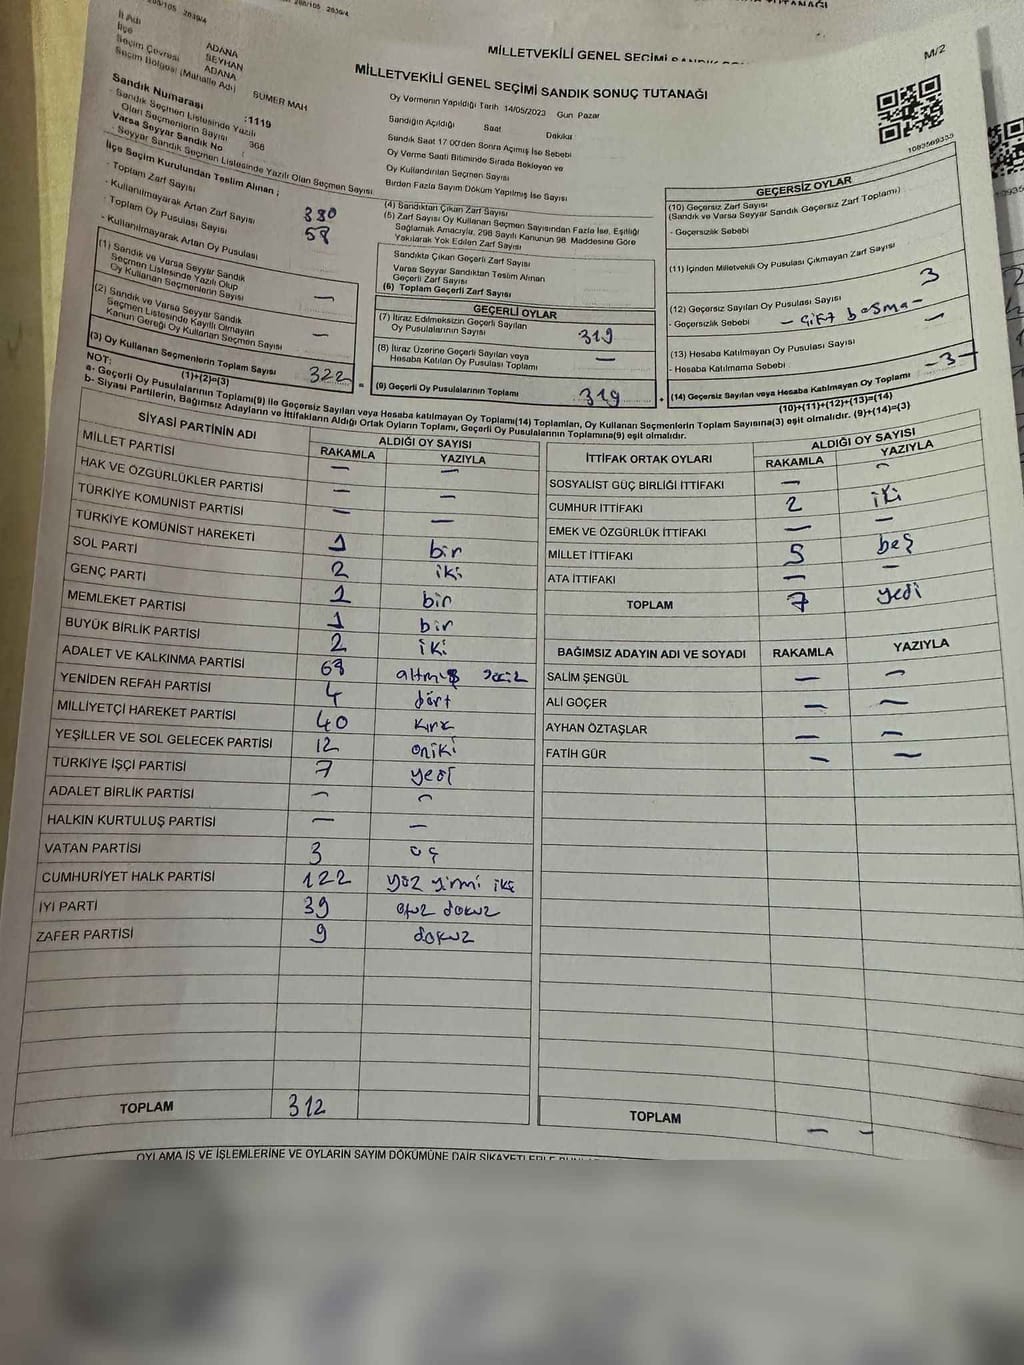 MİLLETVEKİLİ GENEL SEÇİMİ
M/2
MİLLETVEKİLİ GENEL SEÇİMİ SANDIK SONUÇ TUTANAĞI
İl Adı ADANA
İlçe SEYHAN
Seçim Çevresi ADANA
Seçim Bölgesi (Mahalle Adı) SÜMER MAH
Sandık Numarası :1119
- Sandık Seçmen Listesinde Yazılı
Olan Seçmenlerin Sayısı 368
Varsa Seyyar Sandık No :
- Seyyar Sandık Seçmen Listesinde Yazılı Olan Seçmen Sayısı
İlçe Seçim Kurulundan Teslim Alınan ;
- Toplam Zarf Sayısı 380
- Kullanılmayarak Artan Zarf Sayısı 58
- Toplam Oy Pusulası Sayısı
- Kullanılmayarak Artan Oy Pusulası
Oy Vermenin Yapıldığı Tarih 14/05/2023 Gün Pazar
Sandığın Açıldığı Saat Dakika
Sandık Saat 17.00'den Sonra Açılmış İse Sebebi
Oy Verme Saati Bitiminde Sırada Bekleyen ve
Oy Kullandırılan Seçmen Sayısı
Birden Fazla Sayım Döküm Yapılmış İse Sayısı
1093569353
(1) Sandık ve Varsa Seyyar Sandık
Seçmen Listesinde Yazılı Olup
Oy Kullanan Seçmenlerin Sayısı —
(2) Sandık ve Varsa Seyyar Sandık
Seçmen Listesinde Kayıtlı Olmayan
Kanun Gereği Oy Kullanan Seçmen Sayısı —
(3) Oy Kullanan Seçmenlerin Toplam Sayısı 322
(1)+(2)=(3)
(4) Sandıktan Çıkan Zarf Sayısı
(5) Zarf Sayısı Oy Kullanan Seçmen Sayısından Fazla İse, Eşitliği
Sağlamak Amacıyla, 298 Sayılı Kanunun 98. Maddesine Göre
Yakılarak Yok Edilen Zarf Sayısı
Sandıkta Çıkan Geçerli Zarf Sayısı
Varsa Seyyar Sandıktan Teslim Alınan
Geçerli Zarf Sayısı
(6) Toplam Geçerli Zarf Sayısı
GEÇERLİ OYLAR
(7) İtiraz Edilmeksizin Geçerli Sayılan
Oy Pusulalarının Sayısı 319
(8) İtiraz Üzerine Geçerli Sayılan veya
Hesaba Katılan Oy Pusulası Toplamı —
(9) Geçerli Oy Pusulalarının Toplamı 319
GEÇERSİZ OYLAR
(10) Geçersiz Zarf Sayısı
(Sandık ve Varsa Seyyar Sandık Geçersiz Zarf Toplamı)
- Geçersizlik Sebebi
(11) İçinden Milletvekili Oy Pusulası Çıkmayan Zarf Sayısı
(12) Geçersiz Sayılan Oy Pusulası Sayısı 3
- Geçersizlik Sebebi - çift basma -
(13) Hesaba Katılmayan Oy Pusulası Sayısı —
- Hesaba Katılmama Sebebi
(14) Geçersiz Sayılan veya Hesaba Katılmayan Oy Toplamı -3-
(10)+(11)+(12)+(13)=(14)
NOT:
a- Geçerli Oy Pusulalarının Toplamı(9) ile Geçersiz Sayılan veya Hesaba katılmayan Oy Toplamı(14) Toplamları, Oy Kullanan Seçmenlerin Toplam Sayısına(3) eşit olmalıdır. (9)+(14)=(3)
b- Siyasi Partilerin, Bağımsız Adayların ve İttifakların Aldığı Ortak Oyların Toplamı, Geçerli Oy Pusulalarının Toplamına(9) eşit olmalıdır.
SİYASİ PARTİNİN ADI ALDIĞI OY SAYISI
RAKAMLA YAZIYLA
MİLLET PARTİSİ — —
HAK VE ÖZGÜRLÜKLER PARTİSİ — —
TÜRKİYE KOMÜNİST PARTİSİ — —
TÜRKİYE KOMÜNİST HAREKETİ 1 bir
SOL PARTİ 2 iki
GENÇ PARTİ 1 bir
MEMLEKET PARTİSİ 1 bir
BÜYÜK BİRLİK PARTİSİ 2 iki
ADALET VE KALKINMA PARTİSİ 68 altmış sekiz
YENİDEN REFAH PARTİSİ 4 dört
MİLLİYETÇİ HAREKET PARTİSİ 40 kırk
YEŞİLLER VE SOL GELECEK PARTİSİ 12 oniki
TÜRKİYE İŞÇİ PARTİSİ 7 yedi
ADALET BİRLİK PARTİSİ — —
HALKIN KURTULUŞ PARTİSİ — —
VATAN PARTİSİ 3 üç
CUMHURİYET HALK PARTİSİ 122 yüz yirmi iki
İYİ PARTİ 39 otuz dokuz
ZAFER PARTİSİ 9 dokuz
TOPLAM 312
İTTİFAK ORTAK OYLARI ALDIĞI OY SAYISI
RAKAMLA YAZIYLA
SOSYALİST GÜÇ BİRLİĞİ İTTİFAKI — —
CUMHUR İTTİFAKI 2 iki
EMEK VE ÖZGÜRLÜK İTTİFAKI — —
MİLLET İTTİFAKI 5 beş
ATA İTTİFAKI — —
TOPLAM 7 yedi
BAĞIMSIZ ADAYIN ADI VE SOYADI RAKAMLA YAZIYLA
SALİM ŞENGÜL — —
ALİ GÖÇER — —
AYHAN ÖZTAŞLAR — —
FATİH GÜR — —
TOPLAM — —
OYLAMA İŞ VE İŞLEMLERİNE VE OYLARIN SAYIM DÖKÜMÜNE DAİR ŞİKAYETLERLE